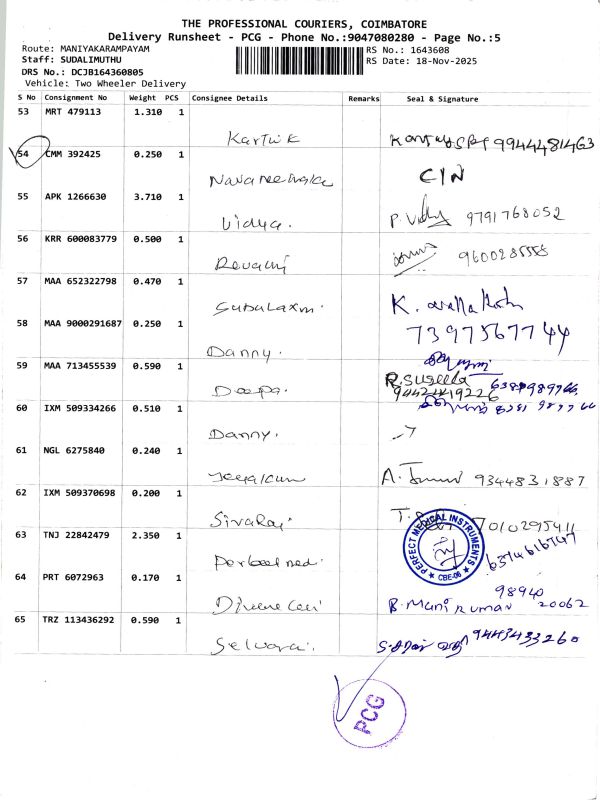 THE PROFESSIONAL COURIERS, COIMBATORE
Delivery Runsheet - PCG - Phone No.:9047080280 - Page No.:5
Route: MANIYAKARAMPAYAM
RS No.: 1643608
Staff: SUDALIMUTHU
RS Date: 18-Nov-2025
DRS No.: DCJB164360805
Vehicle: Two Wheeler Delivery
S No Consignment No Weight PCS Consignee Details Remarks Seal & Signature
53 MRT 479113 1.310 1
Kartik 9944481463
54 CMM 392425 0.250 1
C/N
55 APK 1266630 3.710 1
Vidya. P. Vidy 9791768052
56 KRR 600083779 0.500 1
Revathi
57 MAA 652322798 0.470 1
Subulaxmi. K.
58 MAA 9000291687 0.250 1
7397567744
Danny.
59 MAA 713455539 0.590 1
R. Suseela
Deepa. 9442419226
60 IXM 509334266 0.510 1
Danny.
61 NGL 6275840 0.240 1
A. 9344831887
62 IXM 509370698 0.200 1
Sivaraj. T.
63 TNJ 22842479 2.350 1
PERFECT MEDICAL INSTRUMENTS
CBE-06
6374616747
64 PRT 6072963 0.170 1
98940
B. Manikumar 20062
65 TRZ 113436292 0.590 1
Selvaraj. 9443433260
PCG